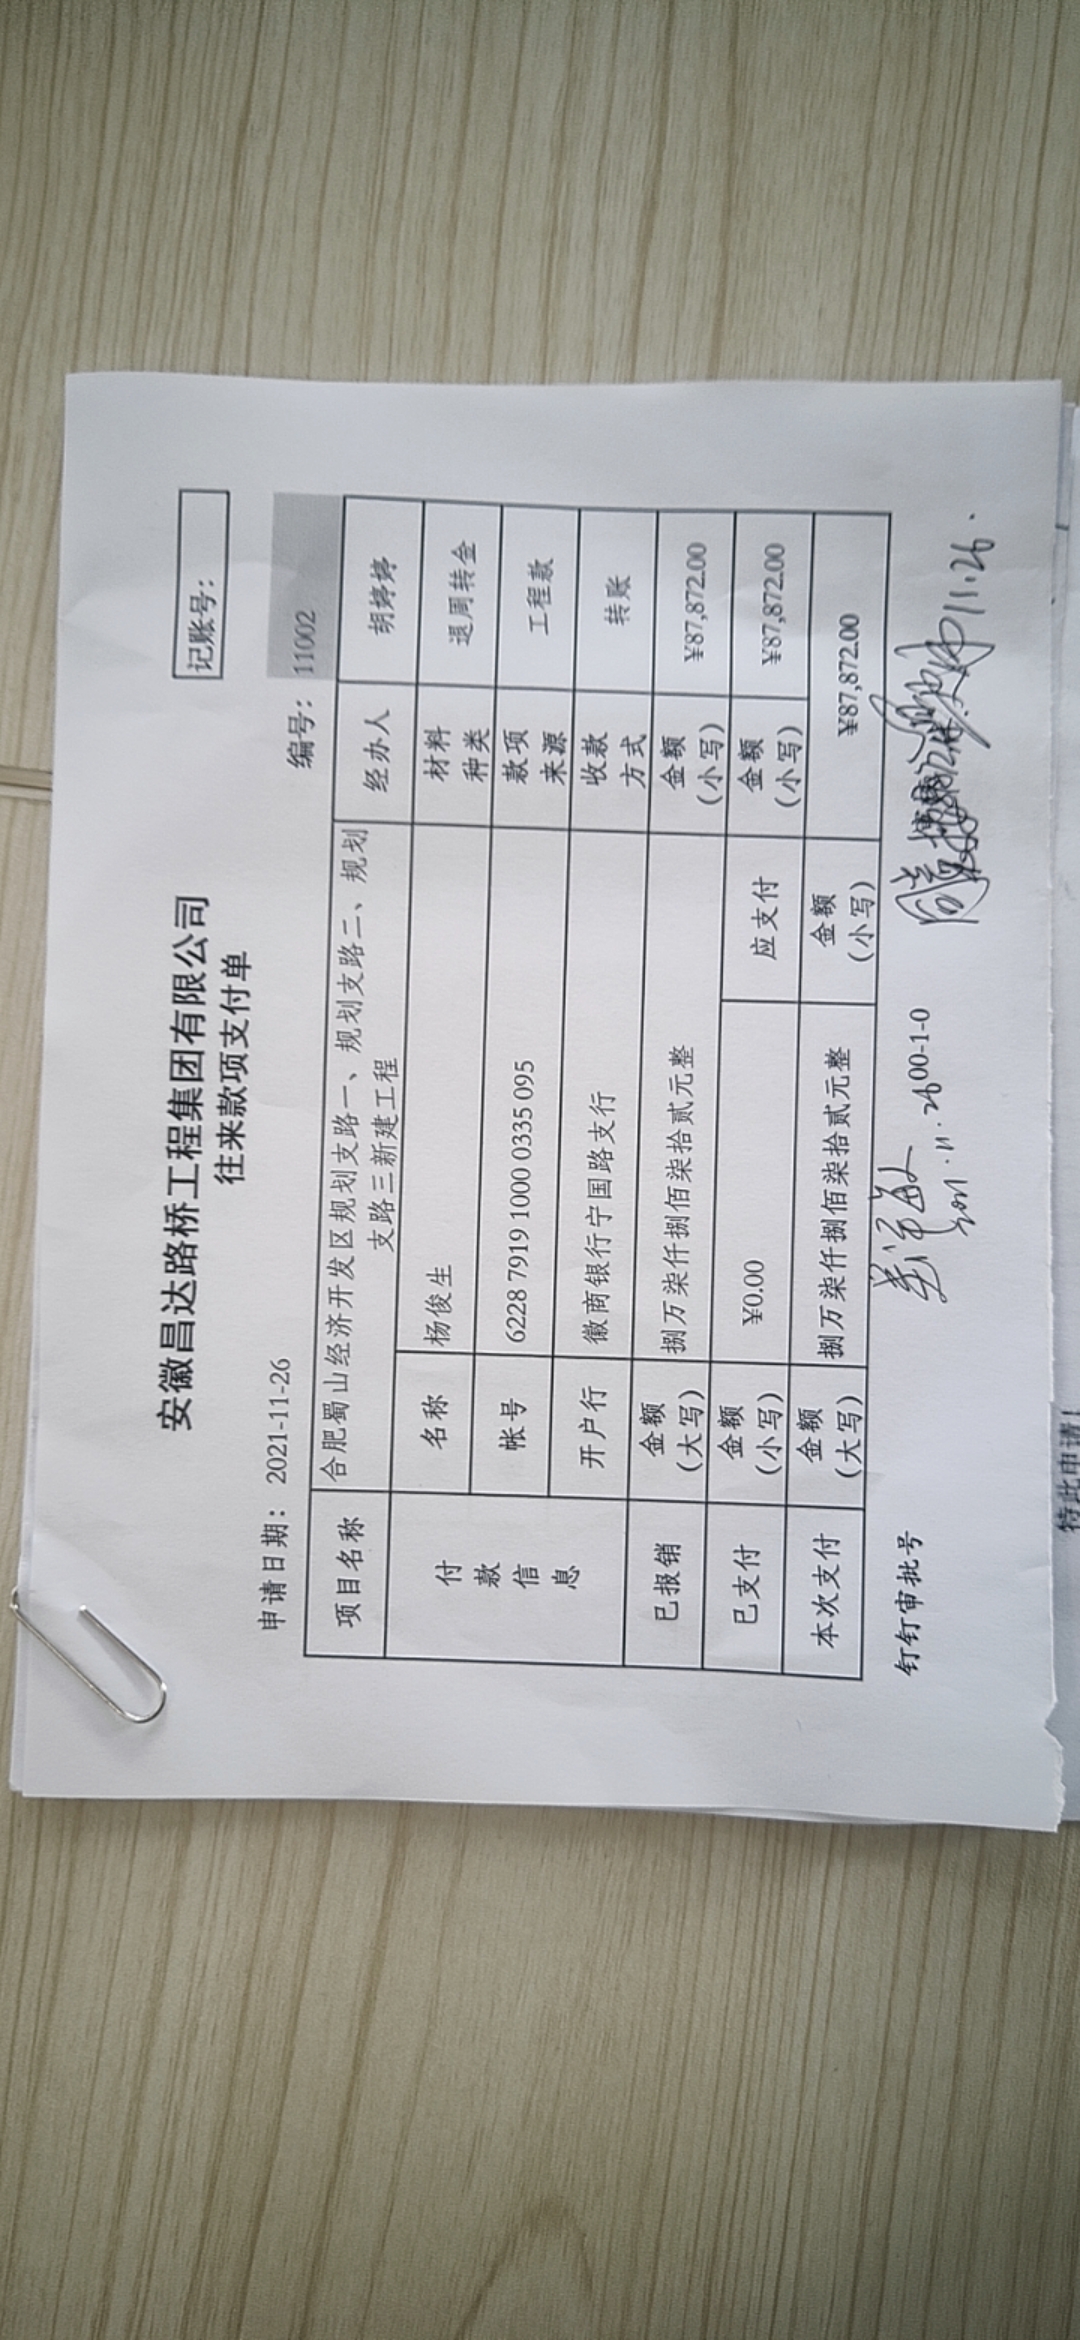 安徽昌达路桥工程集团有限公司
往来款项支付单
记账号：
申请日期： 2021-11-26
编号： 11002
项目名称
合肥蜀山经济开发区规划支路一、规划支路二、规划
支路三新建工程
经办人
胡婷婷
付
款
信
息
名称
杨俊生
材料
种类
退周转金
帐号
6228 7919 1000 0335 095
款项
来源
工程款
开户行
徽商银行宁国路支行
收款
方式
转账
已报销
金额
（大写）
捌万柒仟捌佰柒拾贰元整
金额
（小写）
¥87,872.00
已支付
金额
（小写）
¥0.00
应支付
金额
（小写）
¥87,872.00
本次支付
金额
（大写）
捌万柒仟捌佰柒拾贰元整
金额
（小写）
¥87,872.00
钉钉审批号
00-1-0
11.26.
特此申请！